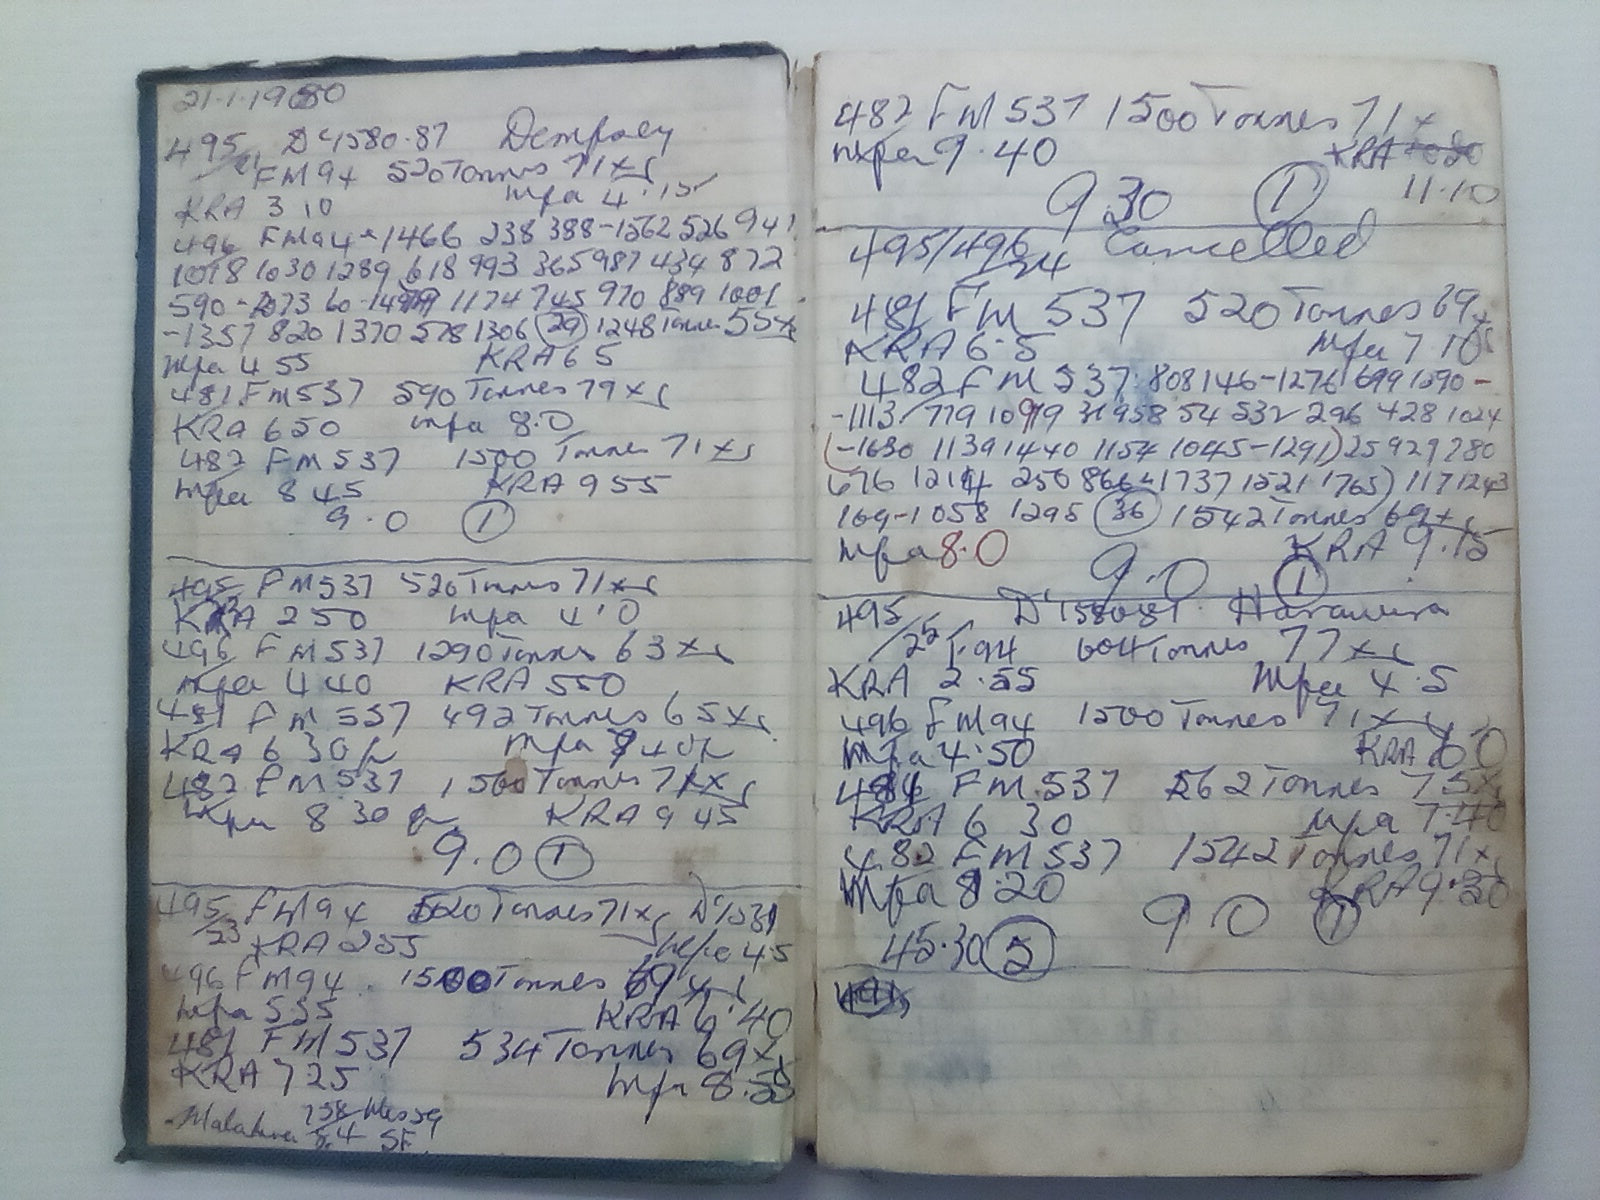 21.1.1980
495 D'4580.87 Dempsey
/21 FM94 520 Tonnes 71xs
KRA 3 10 mpa 4.15
496 FM94-1466 238 388-1562 526 941
1018 1030 1289 618 993 365 987 434 872
590-1073 60- 1174 745 970 889 1001
-1357 820 1370 578 1306 (29) 1248 Tonnes 55xs
mpa 4 55 KRA 6 5
481 FM537 590 Tonnes 79xs
KRA 650 mpa 8.0
482 FM537 1500 Tonnes 71xs
mpa 8 45 KRA 9 55
9.0 (1)
495 FM537 520 Tonnes 71xs
KRA 250 mpa 4.0
496 FM537 1290 Tonnes 63xs
mpa 4 40 KRA 550
481 FM537 492 Tonnes 65xs
KRA 6 30 mpa 7 40
482 FM537 1500 Tonnes 71xs
mpa 8 30 KRA 9 45
9.0 (1)
495 FM94 520 Tonnes 71xs
/23 KRA 255 mpa 4.5
496 FM94 1500 Tonnes 69xs
mpa 535 KRA 6.40
481 FM537 534 Tonnes 69xs
KRA 725 mpa 8.55
482 FM537 1500 Tonnes 71x
mpa 9.40 KRA
11.10
9 30 (1)
495/496 Cancelled
/24
481 FM537 520 Tonnes 69x
KRA 6.5 mpa 7 10
482 FM537 808 146-1276 699 1290-
-1113 779 1099 31 958 54 532 296 428 1024
(-1630 1139 1440 1154 1045-1291) 25 929 780
676 1214 250 866-1737 1521 1765) 1171243
169-1058 1295 (36) 1542 Tonnes 69xs
mpa 8.0 KRA 9.15
9.0 (1)
495
/25 F94 604 Tonnes 77xs
KRA 2.55 mpa 4.5
496 FM94 1500 Tonnes 71xs
mpa 4.50 KRA 6 0
481 FM537 562 Tonnes 75x
KRA 6 30 mpa 7.40
482 FM537 1542 Tonnes 71x
mpa 8.20 KRA 9.30
9 0 (1)
45.30 (5)